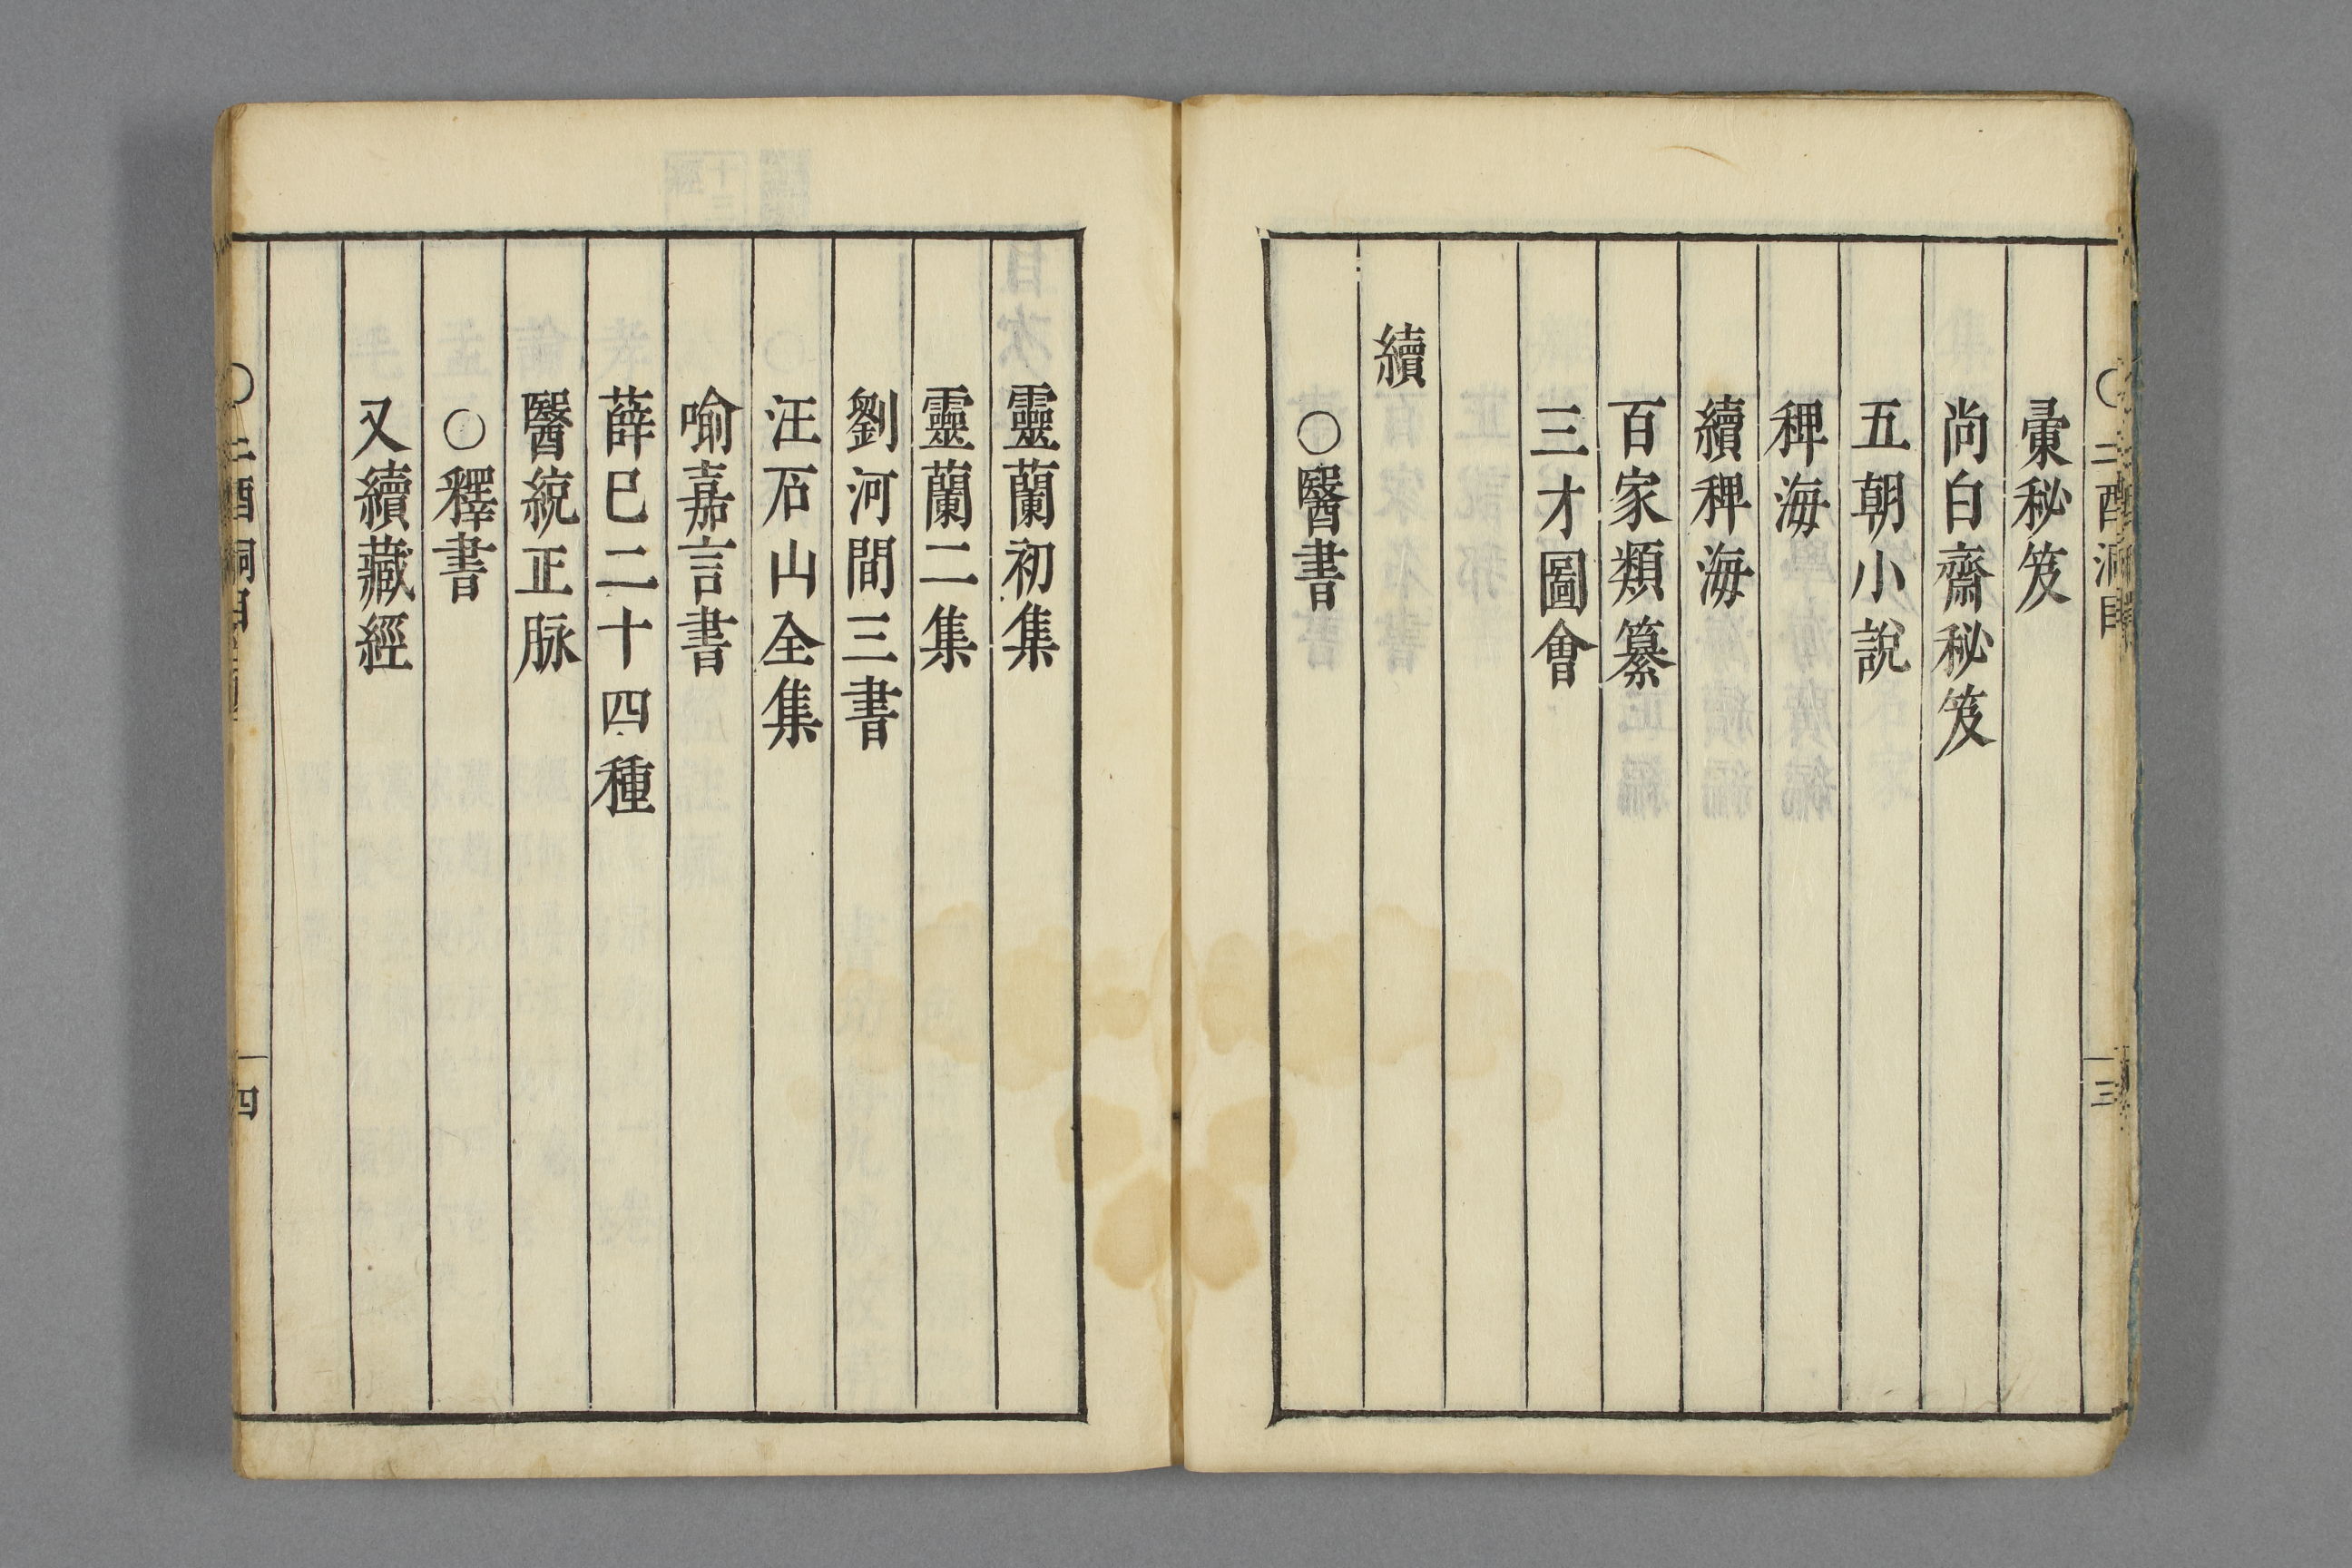 ○二酉洞目
三
彙秘笈
尚白齋秘笈
五朝小說
稗海
續稗海
百家類纂
三才圖會
續
○醫書
靈蘭初集
靈蘭二集
劉河間三書
汪石山全集
喻嘉言書
薛已二十四種
醫統正脉
○釋書
又續藏經
○二酉洞目
四